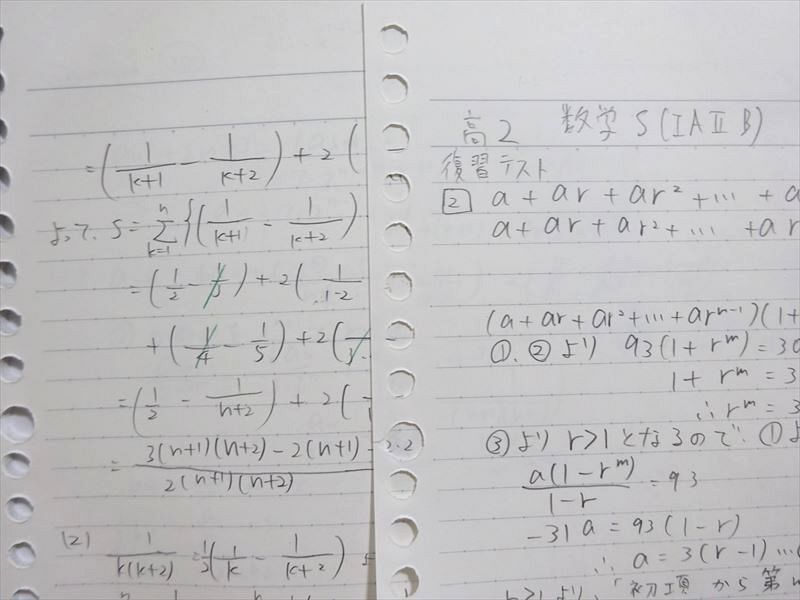 = (1/(k+1) - 1/(k+2)) + 2(
よって、S = Σ_{k=1}^{n} {(1/(k+1) - 1/(k+2))
= (1/2 - 1/3) + 2(1/1·2
+ (1/4 - 1/5) + 2(1/3·
= (1/2 - 1/(n+2)) + 2(
= 3(n+1)(n+2) - 2(n+1) / 2(n+1)(n+2)
(2) 1/k(k+2) = 1/2(1/k - 1/(k+2))
高2 数学S(ⅠAⅡB)
復習テスト
2 a + ar + ar² + … + a
a + ar + ar² + … + ar
(a + ar + ar² + … + arⁿ⁻¹)(1+
①、②より 93(1 + r^m) = 30
1 + r^m = 3
∴ r^m = 3
③より r>1となるので、①よ
a(1 - r^m)/(1 - r) = 93
-31a = 93(1 - r)
∴ a = 3(r - 1) …
r>1より、「初項から第